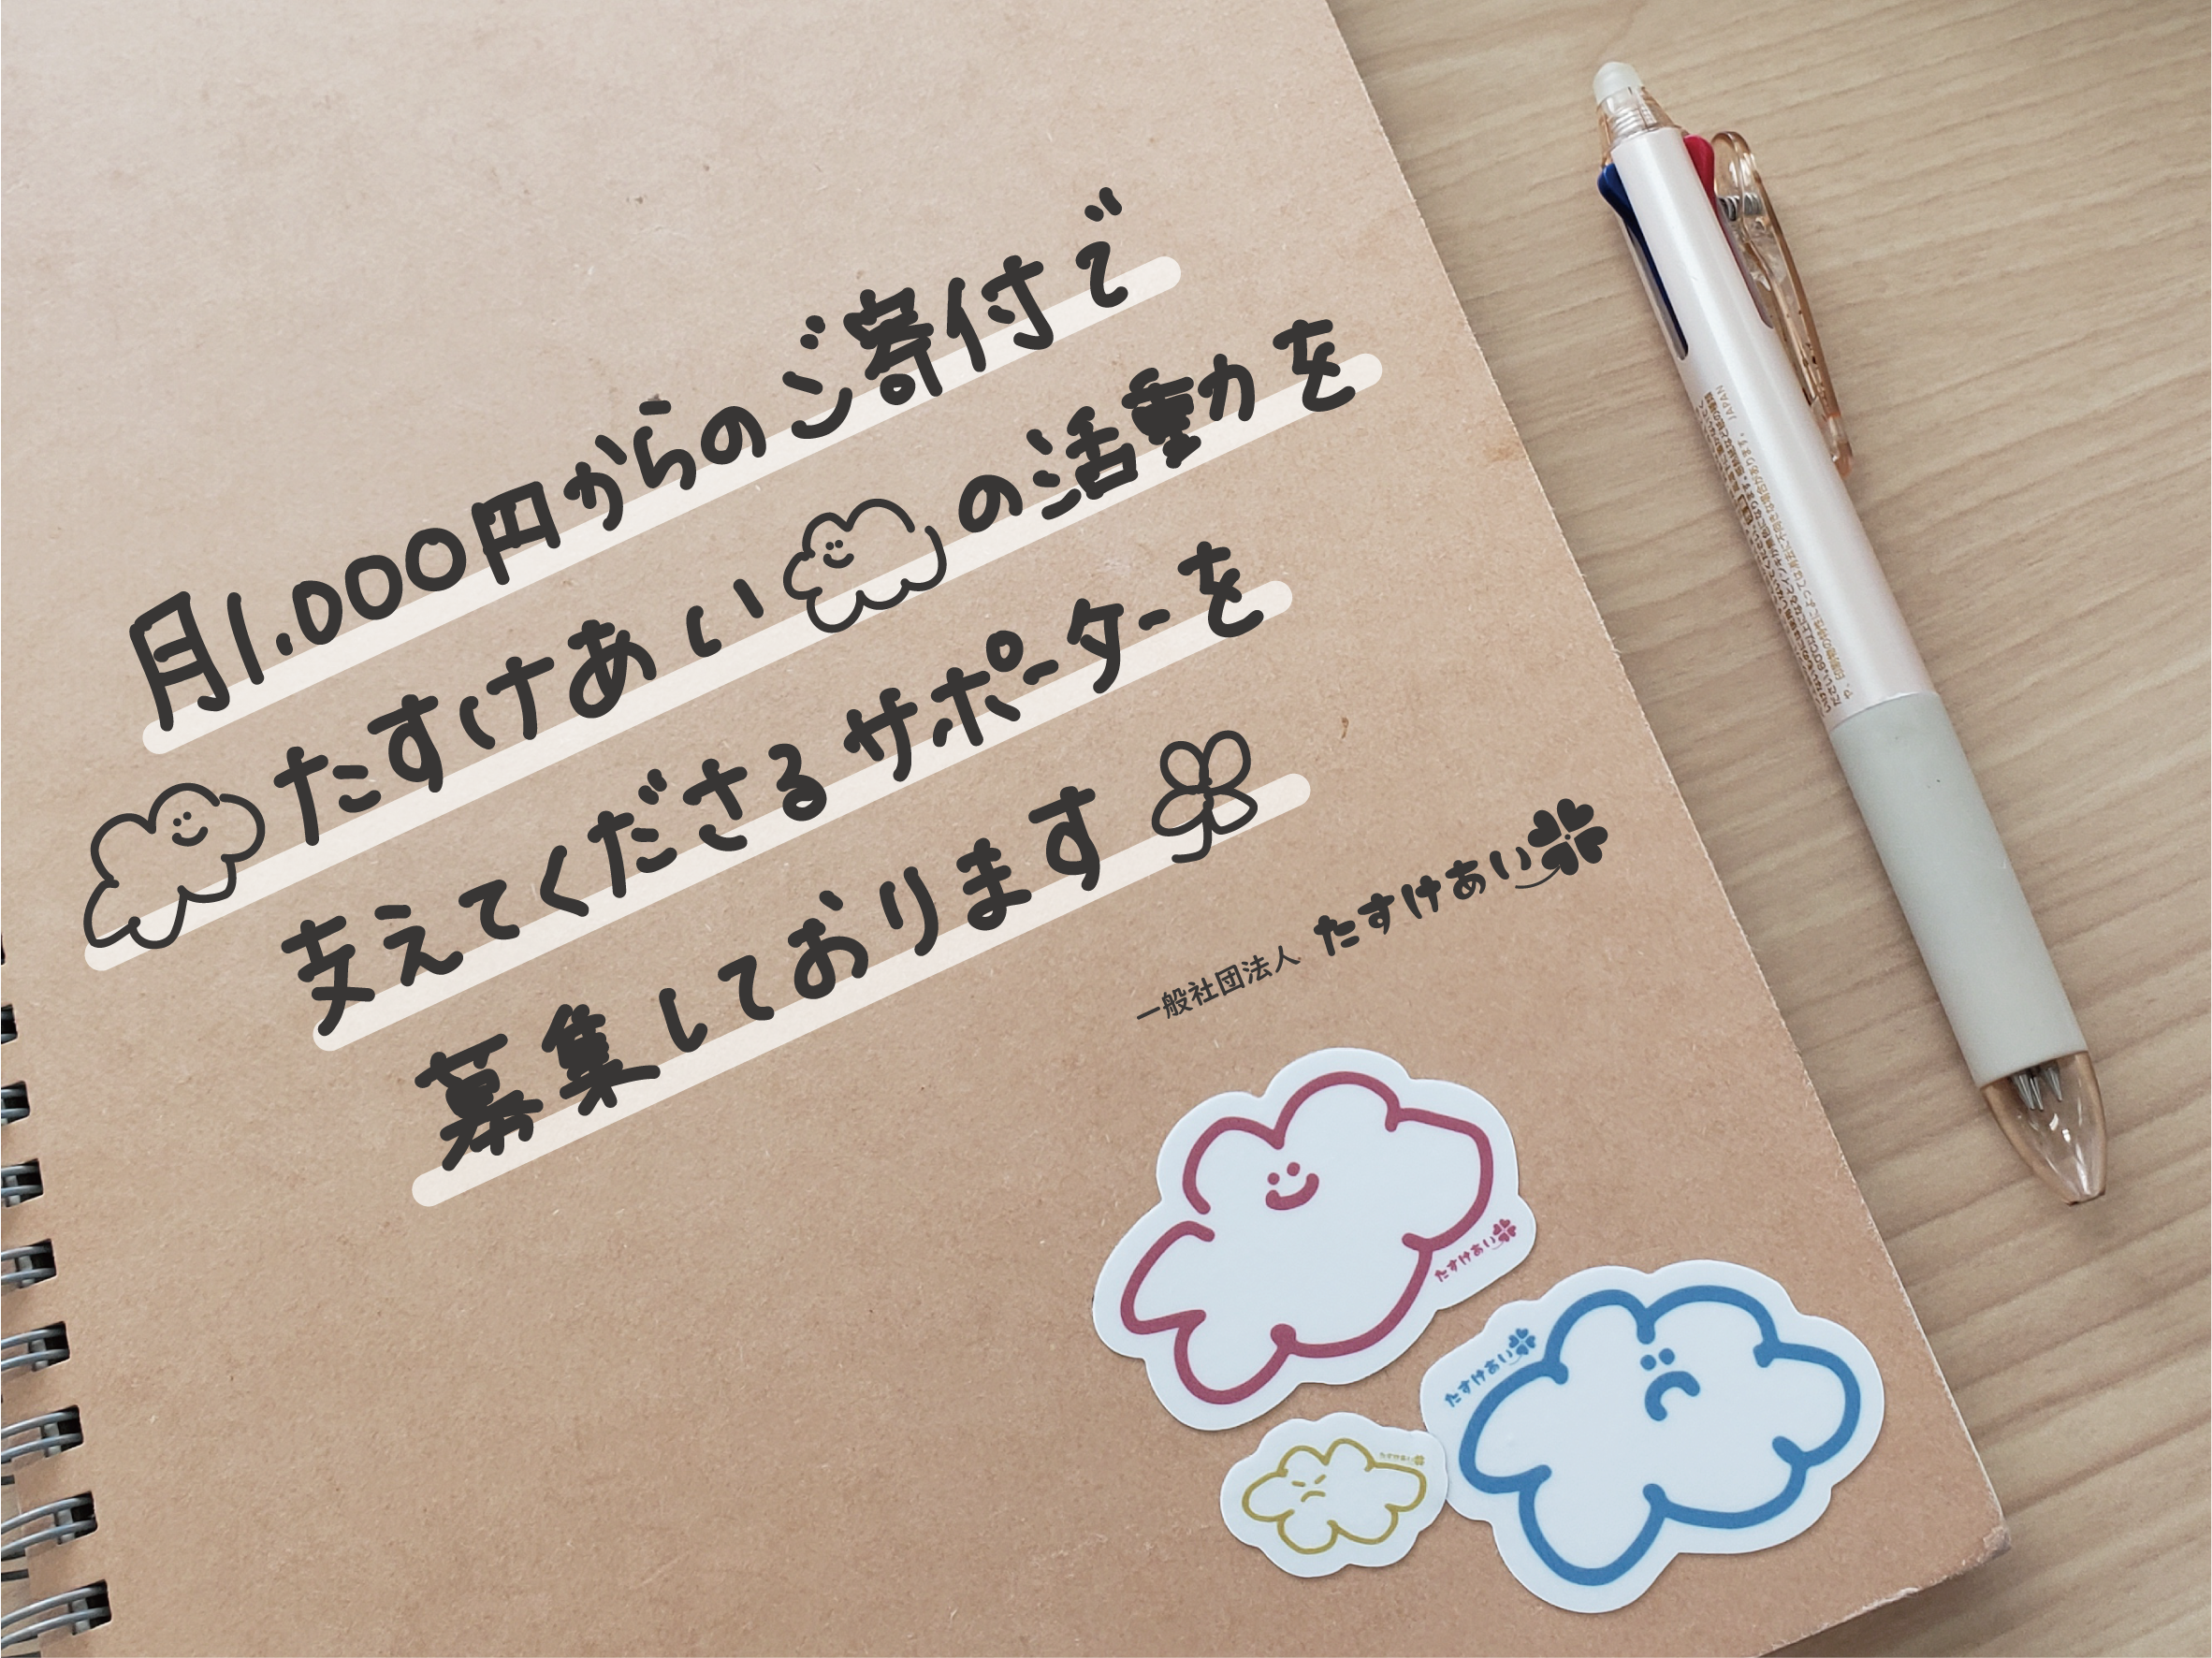 月1.000円からのご寄付で
たすけあいの活動を
支えてくださるサポーターを
募集しております
一般社団法人 たすけあい
たすけあい
たすけあい
たすけあい
JAPAN